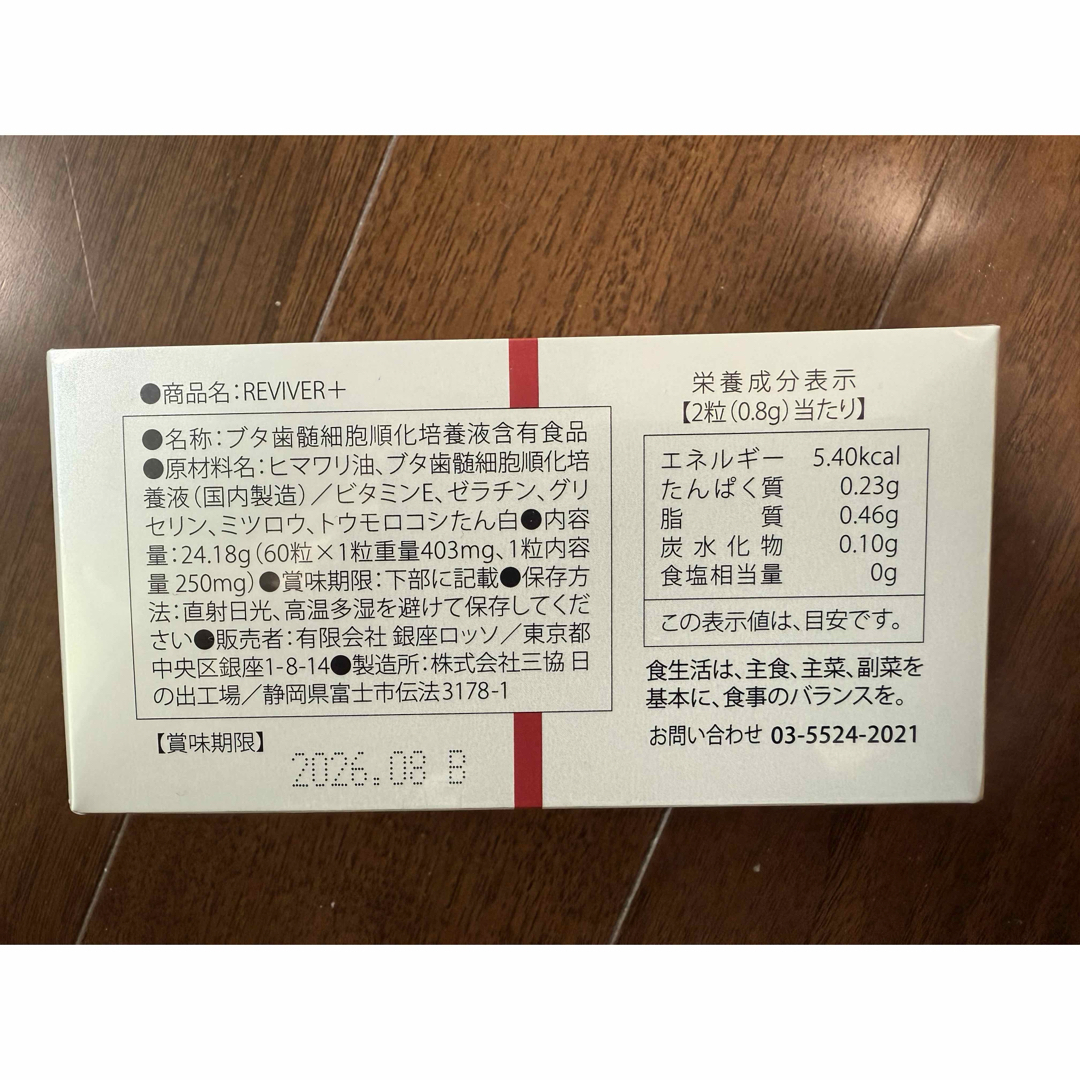 ●商品名：REVIVER＋
●名称：ブタ歯髄細胞順化培養液含有食品
●原材料名：ヒマワリ油、ブタ歯髄細胞順化培
養液（国内製造）／ビタミンE、ゼラチン、グリ
セリン、ミツロウ、トウモロコシたん白●内容
量：24.18g（60粒×1粒重量403mg、1粒内容
量 250mg）●賞味期限：下部に記載●保存方
法：直射日光、高温多湿を避けて保存してくだ
さい●販売者：有限会社 銀座ロッソ／東京都
中央区銀座1-8-14●製造所：株式会社三協 日
の出工場／静岡県富士市伝法3178-1
【賞味期限】
2026.08 B
栄養成分表示
【2粒（0.8g）当たり】
エネルギー 5.40kcal
たんぱく質 0.23g
脂質 0.46g
炭水化物 0.10g
食塩相当量 0g
この表示値は、目安です。
食生活は、主食、主菜、副菜を
基本に、食事のバランスを。
お問い合わせ 03-5524-2021